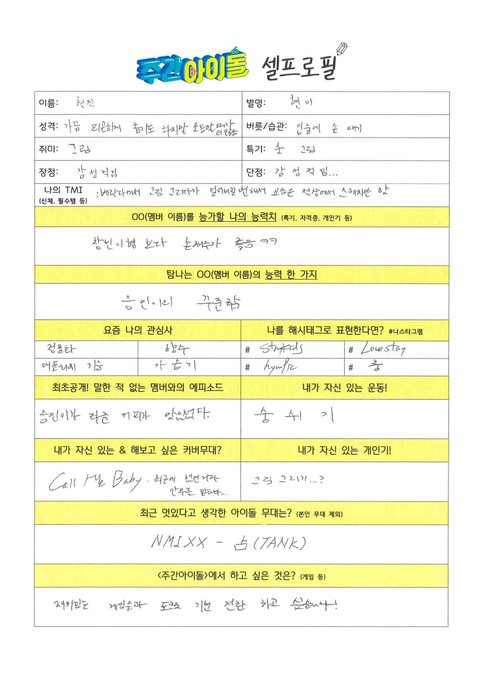 주간아이돌 셀프로필
이름: 현진 별명: 현이
성격: 가끔 피곤하게 굴기도 하지만 버릇/습관: 입술에 손 대기
취미: 그림 특기: 춤 그림
장점: 감성적임 단점: 감성적임...
나의 TMI : 그림 그리다가
(신체, 필수템 등)
OO(멤버 이름)를 능가할 나의 능력치 (특기, 자격증, 개인기 등)
창빈이형 보다 손재주가 좋음 ㅋㅋ
탐나는 OO(멤버 이름)의 능력 한 가지
승민이의 꾸준함
요즘 나의 관심사 나를 해시태그로 표현한다면? #나스타그램
향수 # Straykids # Lovestay
가을 # hyunjin # 춤
최초공개! 말한 적 없는 멤버와의 에피소드 내가 자신 있는 운동!
승민이가 타준 커피가 맛있었다. 숨 쉬기
내가 자신 있는 & 해보고 싶은 커버무대? 내가 자신 있는 개인기!
Call Me Baby - 최근에 그림 그리기..?
최근 멋있다고 생각한 아이돌 무대는? (본인 무대 제외)
NMIXX - 占(TANK)
<주간아이돌>에서 하고 싶은 것은? (게임 등)
재미있는 게임으로 기분 전환 하고 싶습니다!